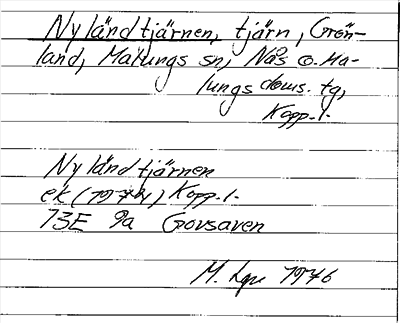 Nyländtjärnen, tjärn, Grön-
land, Malungs sn, Nås o. Ma-
lungs doms. tg,
Kopp. l.
Nyländtjärnen
ek (1974) Kopp. l.
13E 9a Govsaven
M. 1976